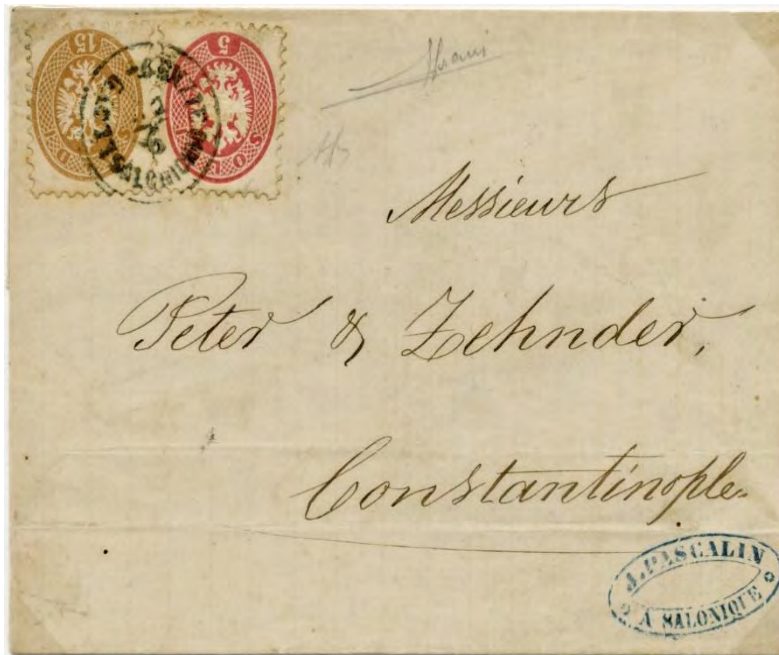 15 5
SOLDI
Messieurs
Peter & Zehnder,
Constantinople.
J. PASCALIN
A SALONIQUE